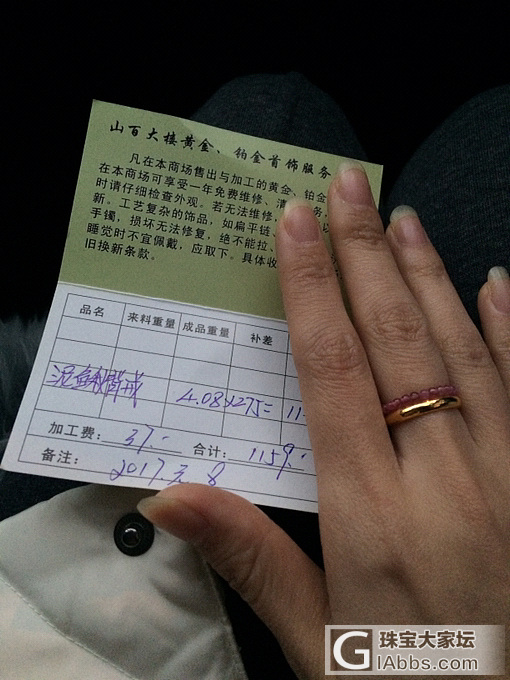 山百大楼黄金、铂金首饰服务
凡在本商场售出与加工的黄金、铂金
在本商场可享受一年免费维修、清 务,
时请仔细检查外观。若无法维修, 以
新。工艺复杂的饰品,如扁平链、
手镯,损坏无法修复,绝不能拉、
睡觉时不宜佩戴,应取下。具体收
旧换新条款。
品名 来料重量 成品重量 补差
泥鳅背戒 4.08×275= 11
加工费: 37.- 合计: 1159.-
备注: 2017.3.8
G 珠宝大家坛
iAbbs.com